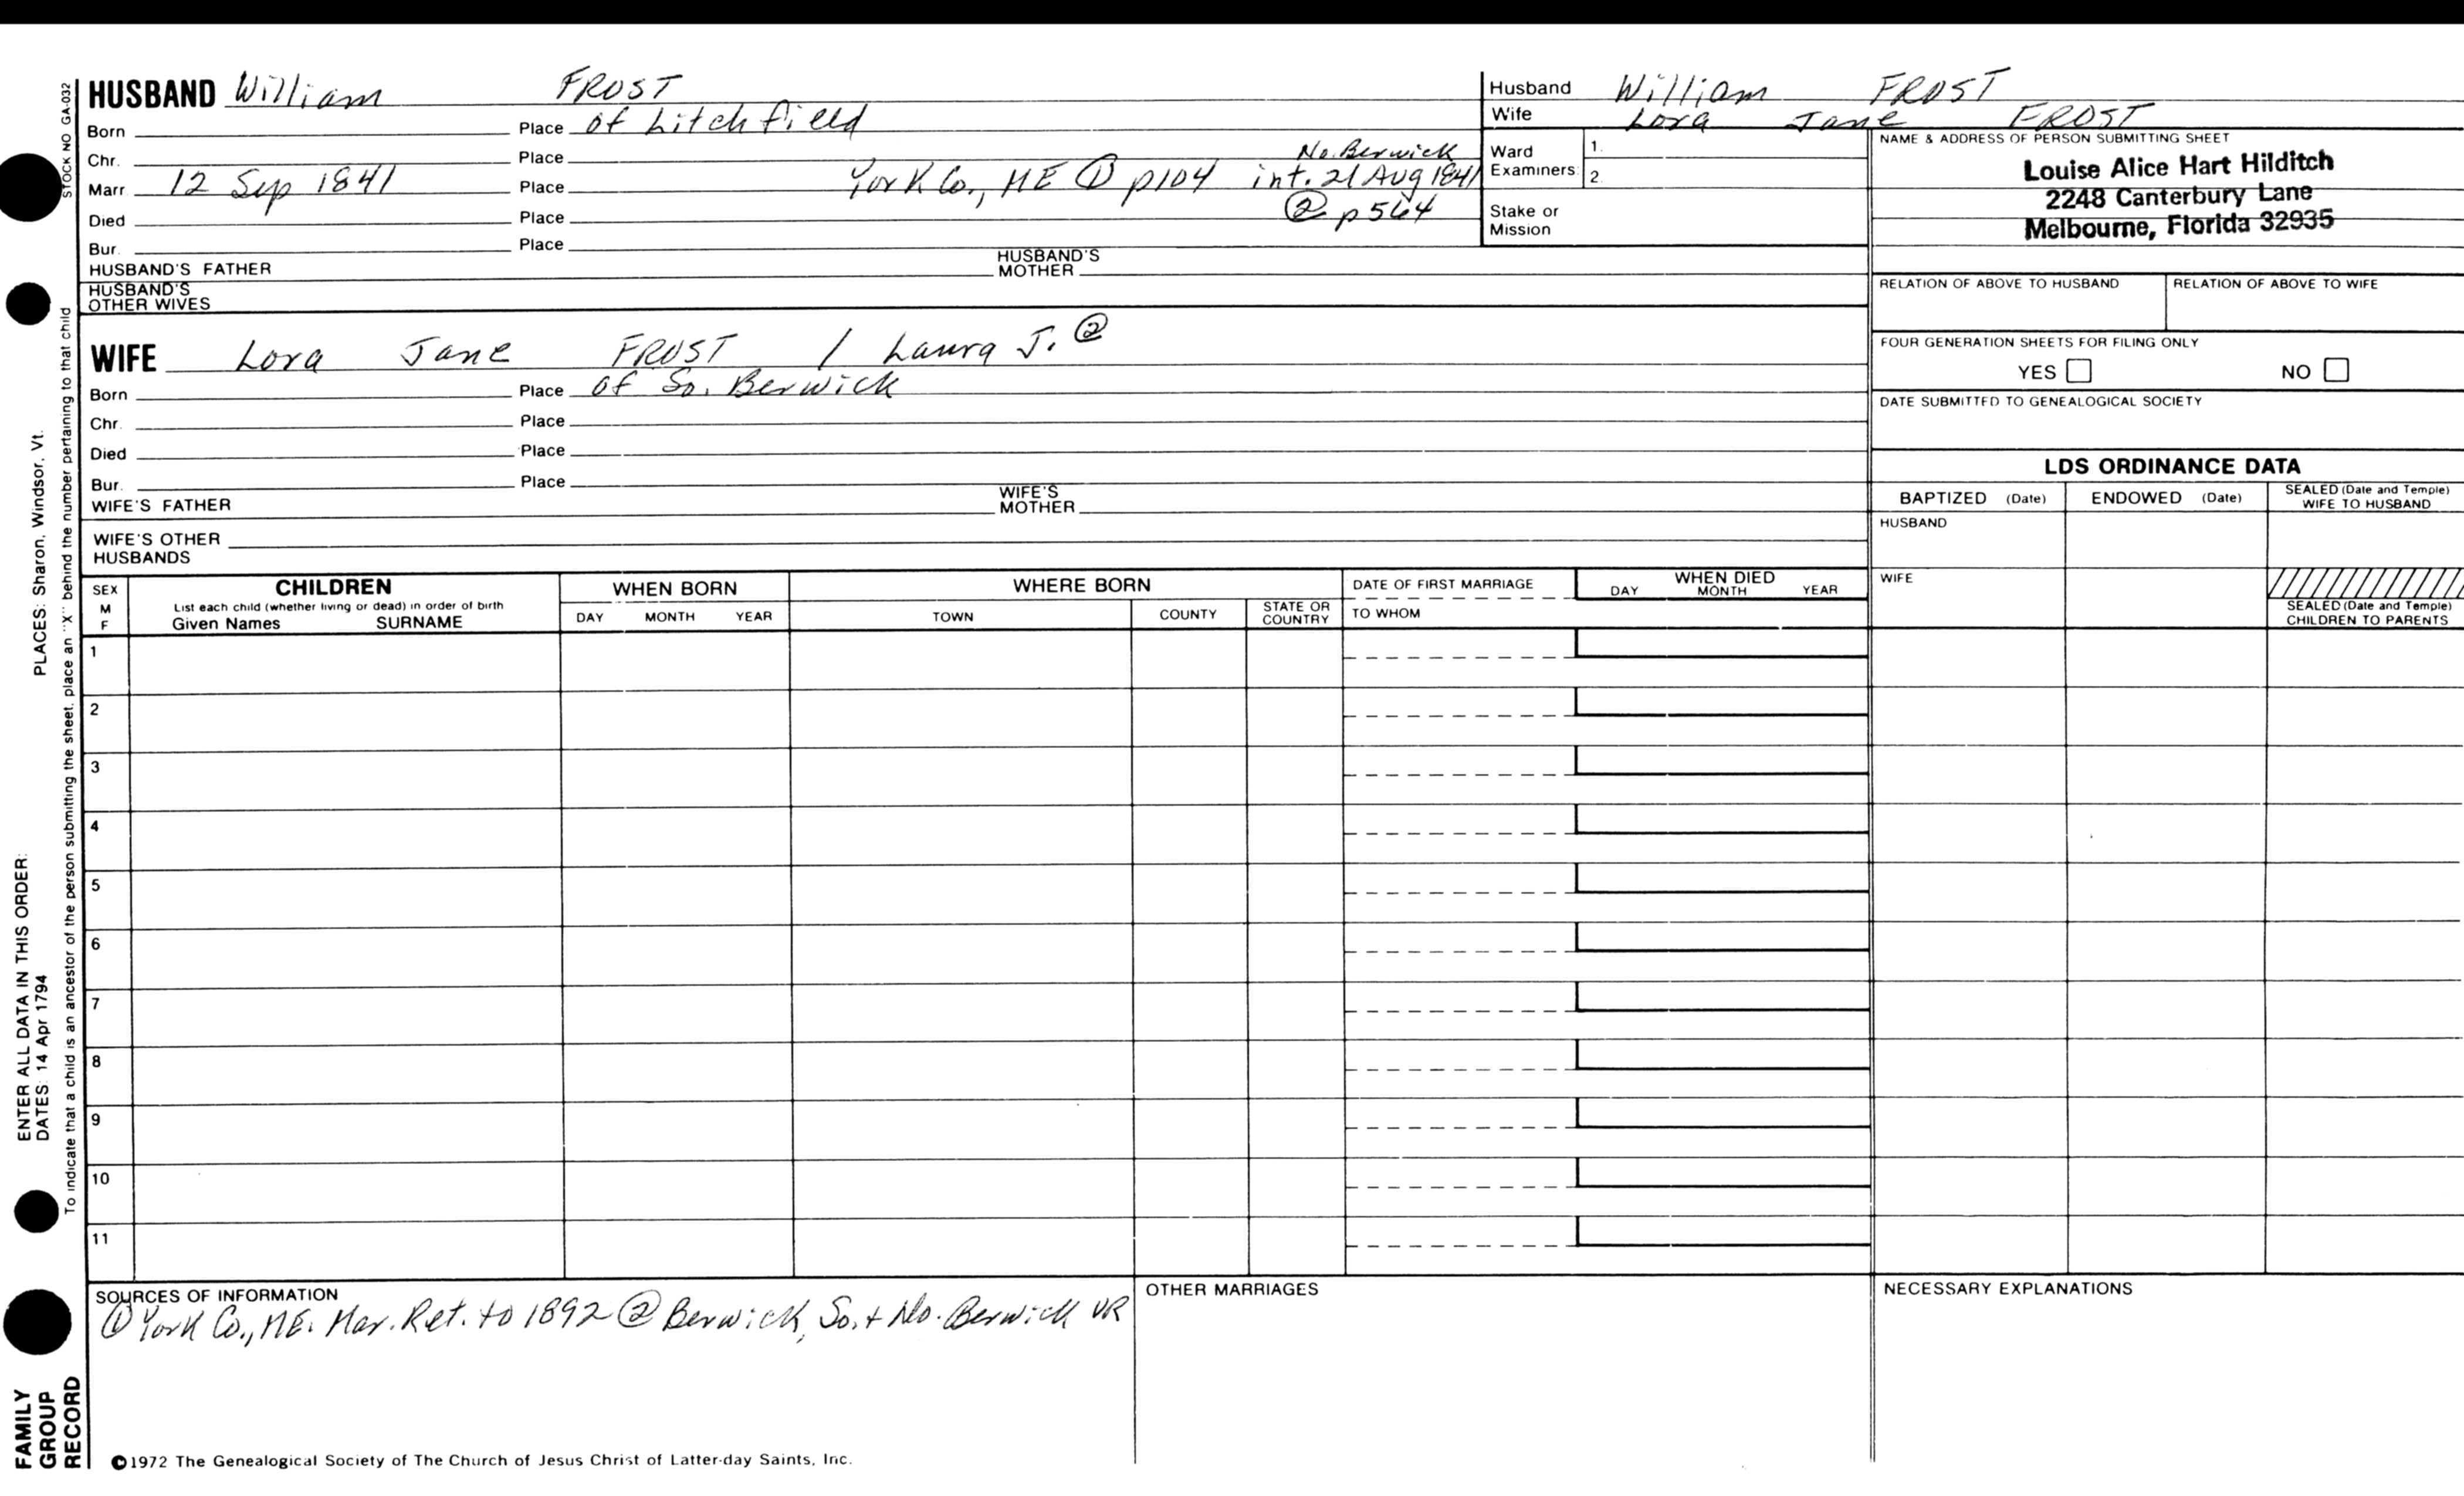 HUSBAND William FROST
Born Place of Litchfield
Chr. Place No. Berwick
Marr 12 Sep 1841 Place York Co., ME ① p104 int. 21 Aug 1841
Died Place ② p564
Bur. Place
HUSBAND'S FATHER HUSBAND'S MOTHER
HUSBAND'S OTHER WIVES
WIFE Lora Jane FROST / Laura J. ②
Born Place of So. Berwick
Chr. Place
Died Place
Bur. Place
WIFE'S FATHER WIFE'S MOTHER
WIFE'S OTHER HUSBANDS
Husband William FROST
Wife Lora Jane FROST
Ward Examiners: 1. 2.
Stake or Mission
NAME & ADDRESS OF PERSON SUBMITTING SHEET
Louise Alice Hart Hilditch
2248 Canterbury Lane
Melbourne, Florida 32935
RELATION OF ABOVE TO HUSBAND RELATION OF ABOVE TO WIFE
FOUR GENERATION SHEETS FOR FILING ONLY
YES NO
DATE SUBMITTED TO GENEALOGICAL SOCIETY
LDS ORDINANCE DATA
BAPTIZED (Date) ENDOWED (Date) SEALED (Date and Temple) WIFE TO HUSBAND
HUSBAND
WIFE
SEALED (Date and Temple) CHILDREN TO PARENTS
SEX M F
CHILDREN
List each child (whether living or dead) in order of birth
Given Names SURNAME
WHEN BORN
DAY MONTH YEAR
WHERE BORN
TOWN COUNTY STATE OR COUNTRY
DATE OF FIRST MARRIAGE
TO WHOM
WHEN DIED
DAY MONTH YEAR
1
2
3
4
5
6
7
8
9
10
11
SOURCES OF INFORMATION
① York Co., ME. Mar. Ret. to 1892 ② Berwick, So. + No. Berwick VR
OTHER MARRIAGES
NECESSARY EXPLANATIONS
©1972 The Genealogical Society of The Church of Jesus Christ of Latter-day Saints, Inc.
STOCK NO GA-032
To indicate that a child is an ancestor of the person submitting the sheet, place an "X" behind the number pertaining to that child
ENTER ALL DATA IN THIS ORDER:
DATES: 14 Apr 1794 PLACES: Sharon, Windsor, Vt.
FAMILY
GROUP
RECORD